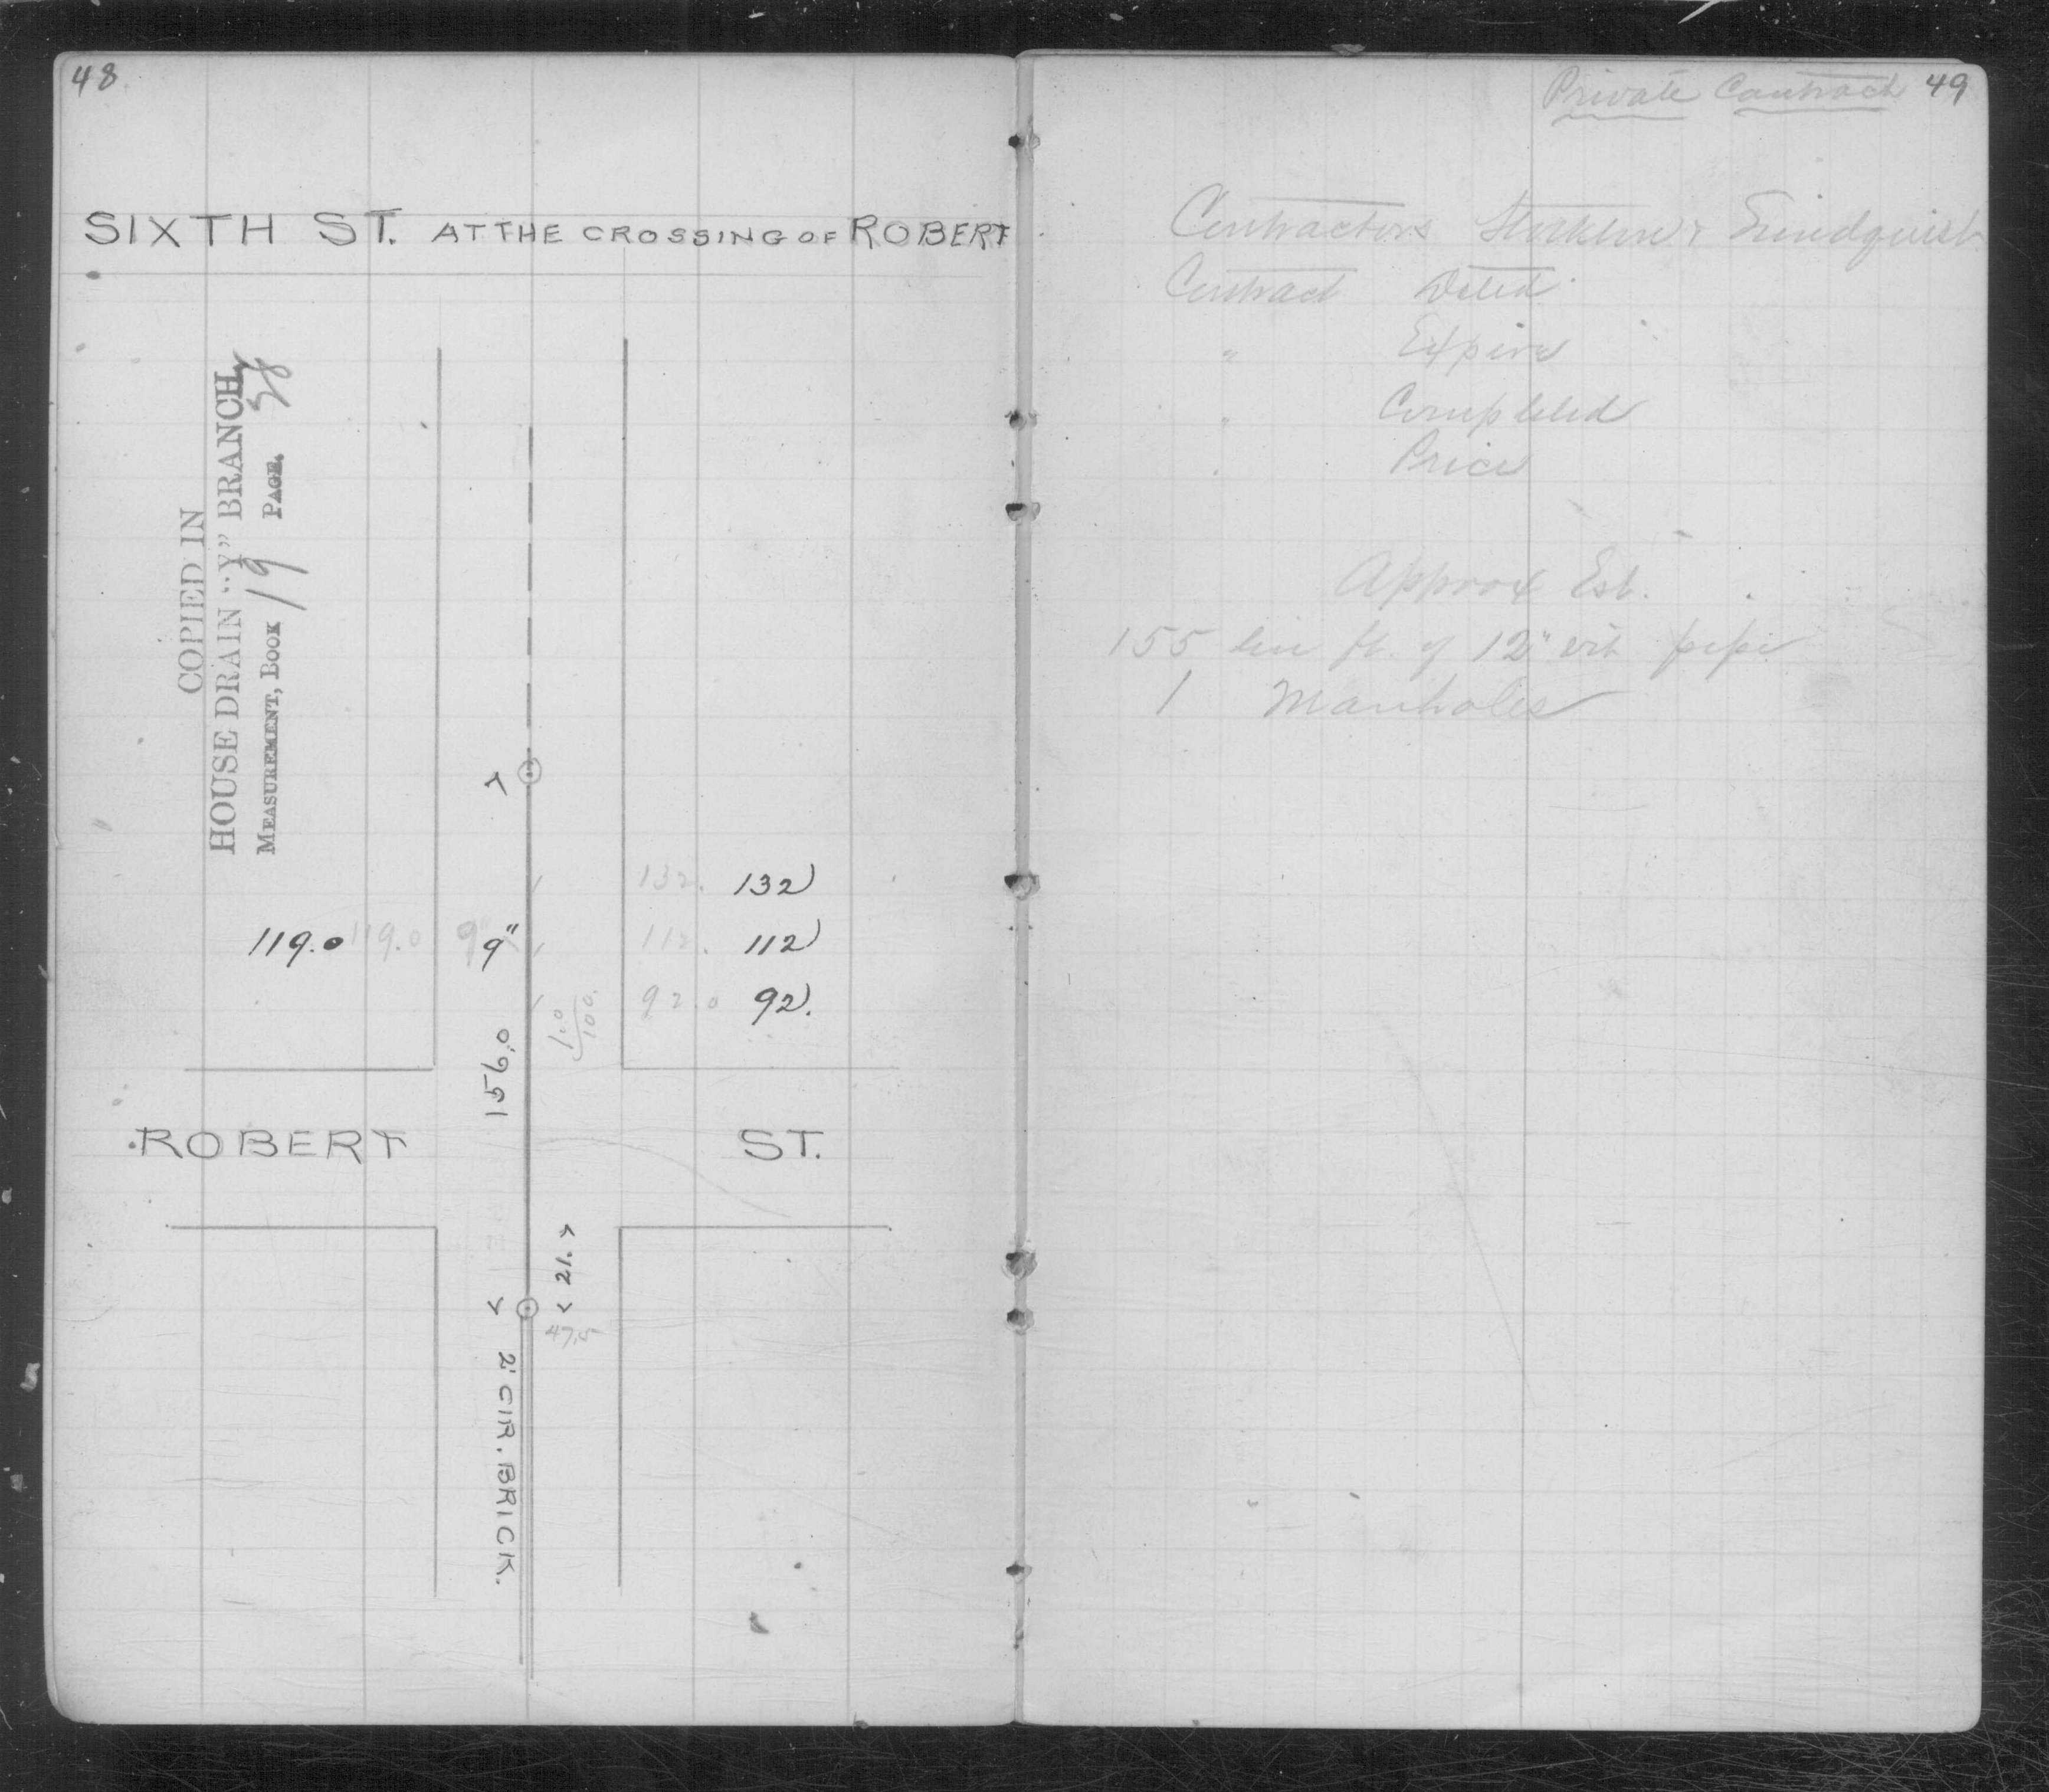 48
SIXTH ST. AT THE CROSSING OF ROBERT
COPIED IN
HOUSE DRAIN "Y" BRANCH
MEASUREMENT, BOOK 19 PAGE. 38
132. 132
119.0 119.0 9" 9" 112. 112
92.0 92.
1.0/100.
156.0
ROBERT ST.
< 21. >
47.5
2' CIR. BRICK.
Private Contract 49
Contractors &
Contract Dated
" Expire
" Completed
" Price
Approx Est.
155 lin ft. of 12" vit pipe
1 Manholes